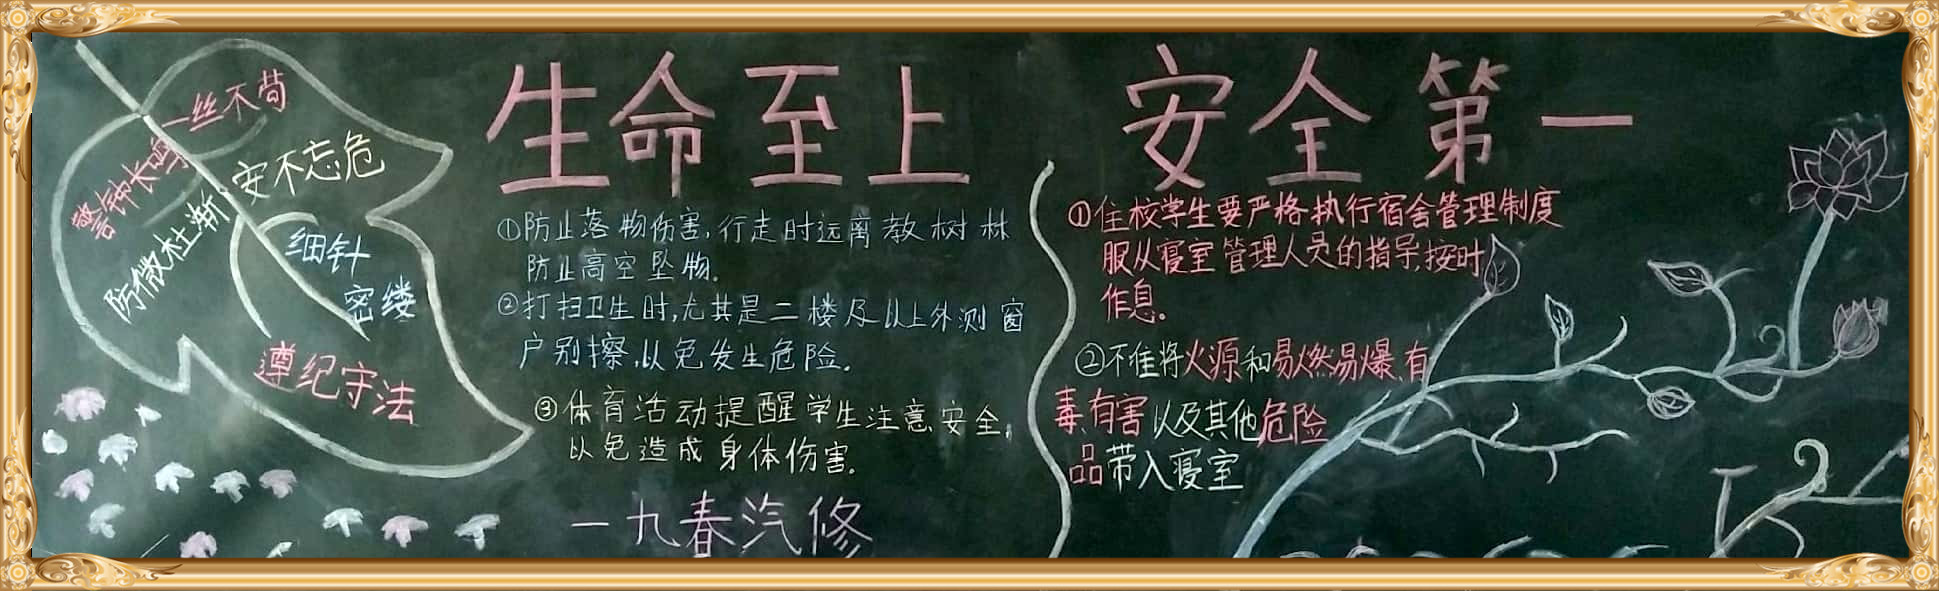 生命至上 安全第一
一丝不苟
警钟长鸣
安不忘危
防微杜渐
细针
密缕
遵纪守法
①防止落物伤害,行走时远离教树林
防止高空坠物.
②打扫卫生时,尤其是二楼及以上外测窗
户别擦,以免发生危险.
③体育活动提醒学生注意安全,
以免造成身体伤害.
一九春汽修
①住校学生要严格执行宿舍管理制度
服从寝室管理人员的指导,按时
作息。
②不准将火源和易燃易爆、有
毒、有害以及其他危险
品带入寝室